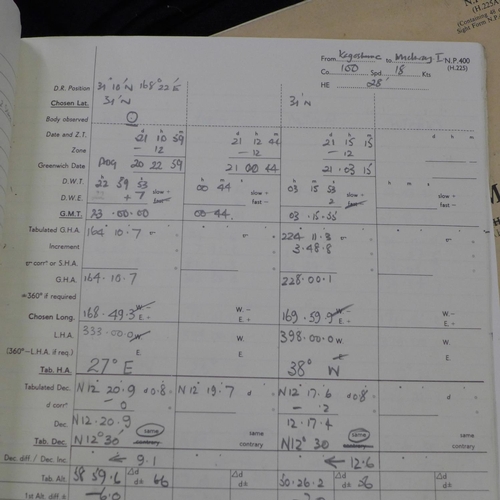 N.P. 400
(H.225)
From Kagoshima to Midway I
Co 100 Spd 18 Kts
HE 28'
D.R. Position 31° 10'N 168° 22'E
Chosen Lat. 31°N 31°N
Body observed
d h m d h m d h m d h m
Date and Z.T. 21 10 59 21 12 44 21 15 15
Zone – 12 – 12 – 12
Greenwich Date AUG 20 22 59 21 00 44 21 03 15
D.W.T. 22 59 53 slow + 00 44 slow + 03 15 53 slow + slow +
D.W.E. + 7 fast – fast – 2 fast – fast –
G.M.T. 23 00 00 00 44 03 15 55
Tabulated G.H.A. 164 10.7 224 11.3
Increment 3.48.8
v corrⁿ or S.H.A.
G.H.A. 164.10.7 228.00.1
±360° if required
Chosen Long. 168.49.3 W.– E.+ W.– E.+ 169.59.9 W.– E.+ W.– E.+
L.H.A. 333.00.0 W. W. 398.00.0 W. W.
(360°–L.H.A. if req.) E. E. E. E.
Tab. H.A. 27° E 38° W
Tabulated Dec. N12 20.9 d 0.8 N12 19.7 d N12 17.6 d 0.8 d
d corrⁿ – 0 – .2
Dec. N12.20.9 12.17.4
Tab. Dec. N12° 30' same contrary same contrary N12° 30 same contrary same contrary
Dec. diff. / Dec. Inc. ← 9.1 ← 12.6
Tab. Alt. 58 59.6 Δd d± 66 Δd d± 50.26.2 Δd d± 56 Δd d±
1st Alt. diff ± – 6.0